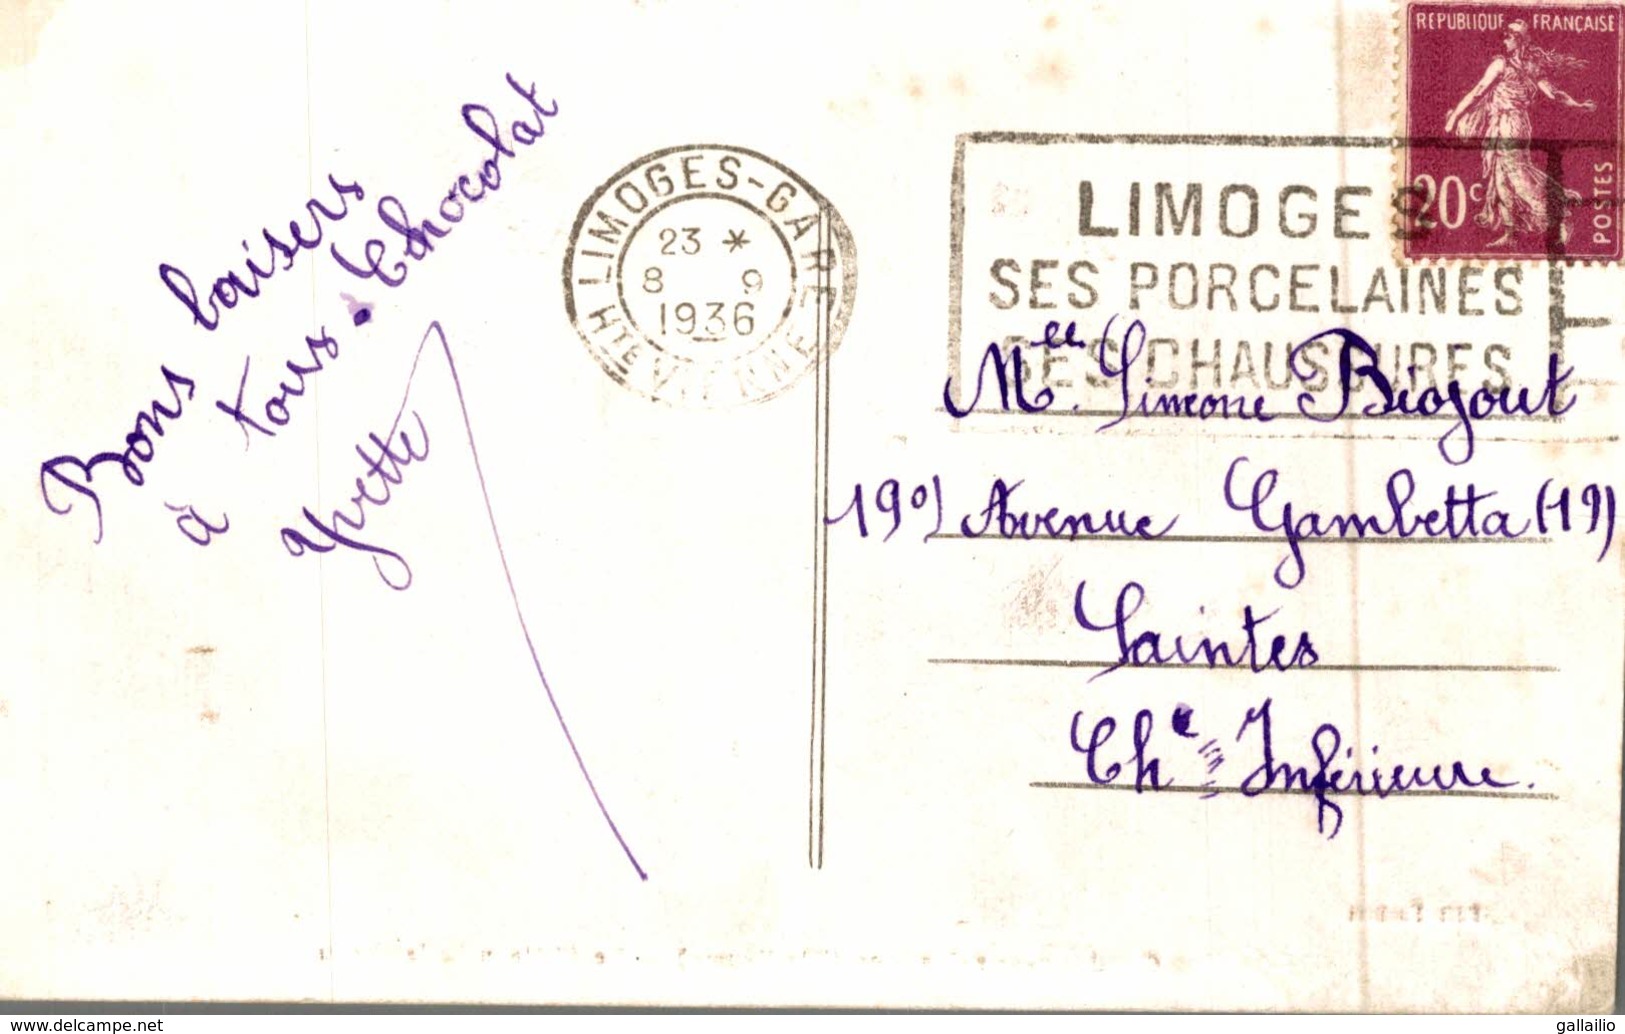 Bons baisers
à tous. Chocolat
Yvette
LIMOGES-GARE
23 *
8 9
1936
HTE VIENNE
REPUBLIQUE FRANÇAISE
20c
POSTES
LIMOGES
SES PORCELAINES
SES CHAUSSURES
Melle Simone Biojout
19°) Avenue Gambetta (19)
Saintes
Che Inférieure.
www.delcampe.net
gallailio